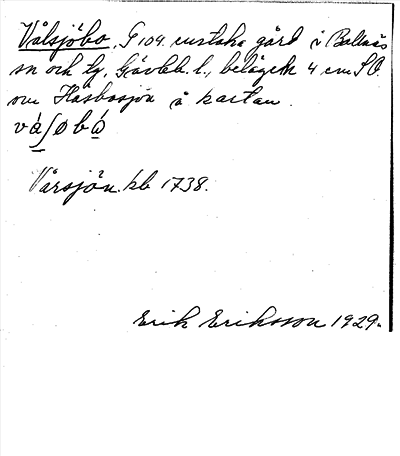 Vålsjöbo, G 104. enstaka gård i Bollnäs
sn och tg, Gävleb. l., belägen 4 cm SO.
om Häsbosjön å kartan.
vá̱ʃøbó̱
Vårsjön. kb 1738.
Erik Eriksson 1929.